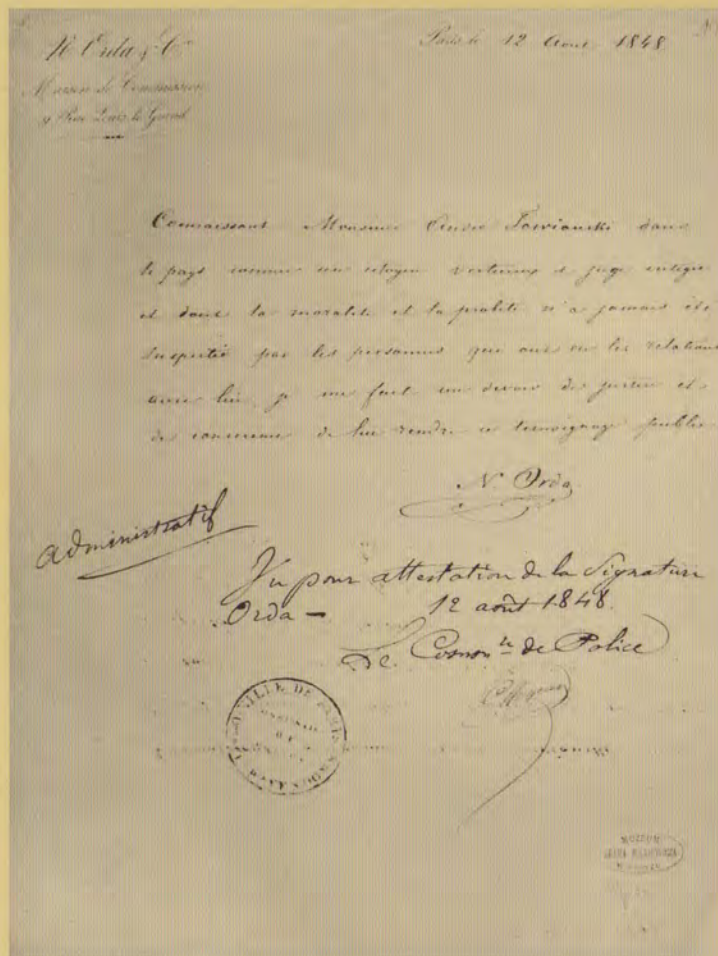 N. Orda & Cie
Maison de Commission
4 Rue Louis le Grand
Paris le 12 Aout 1848
Connaissant Monsieur André Towianski dans
le pays comme un citoyen vertueux et juge integre
et dont la moralité et la probité n'a jamais été
suspectée par les personnes qui ont eu les relations
avec lui, je me fait un devoir de justice et
de conscience de lui rendre ce temoignage public
N. Orda
administratif
Vu pour attestation de la Signature
Orda — 12 août 1848.
Le Commre de Police
VILLE DE PARIS
MUZEUM
ADAMA MICKIEWICZA